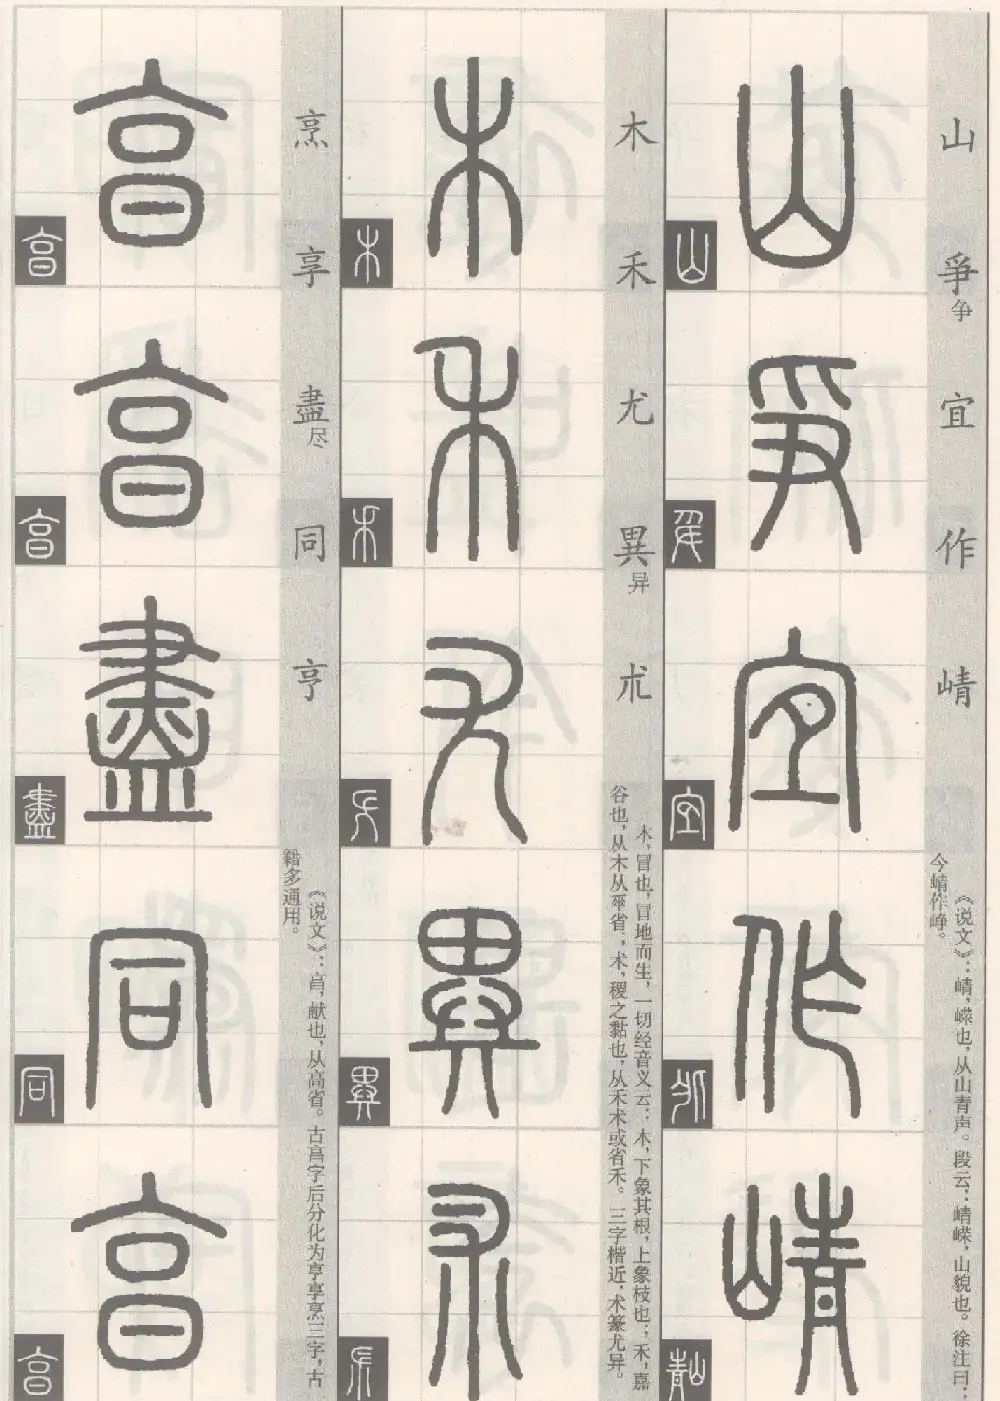 山 爭争 宜 作 崝
《说文》：崝，嵘也，从山青声。段云：崝嵘，山貌也。徐注曰：
今崝作峥。
山 爭 宜 作 崝
木 禾 尤 異异 朮
木，冒也，冒地而生，一切经音义云：木，下象其根，上象枝也；禾，嘉
谷也，从木从省；术，稷之黏也，从禾术或省禾。三字楷近，术篆尤异。
木 禾 尤 異 朮
烹 享 盡尽 同 亨
《说文》：亯，献也，从高省。古亯字后分化为亨享烹三字，古
籍多通用。
亯 亯 盡 同 亯